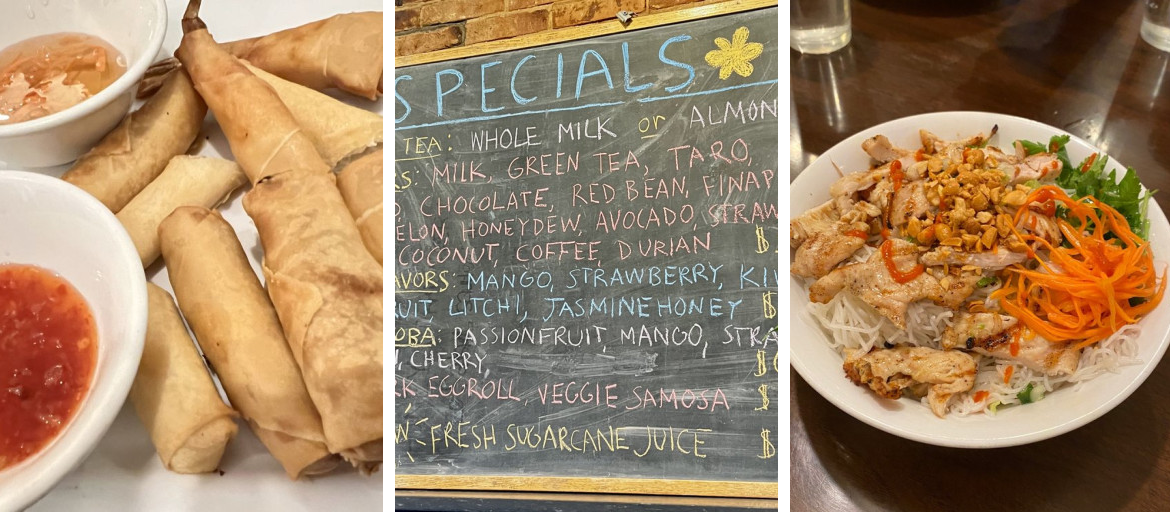 SPECIALS
TEA: WHOLE MILK or ALMON
S: MILK, GREEN TEA, TARO,
CHOCOLATE, RED BEAN, PINAP
ELON, HONEYDEW, AVOCADO, STRAW
COCONUT, COFFEE, DURIAN $
AVORS: MANGO, STRAWBERRY, KI
RUIT, LITCHI, JASMINE HONEY $
OBA: PASSIONFRUIT MANGO, STRA
, CHERRY, $
K EGGROLL, VEGGIE SAMOSA $
W FRESH SUGARCANE JUICE $